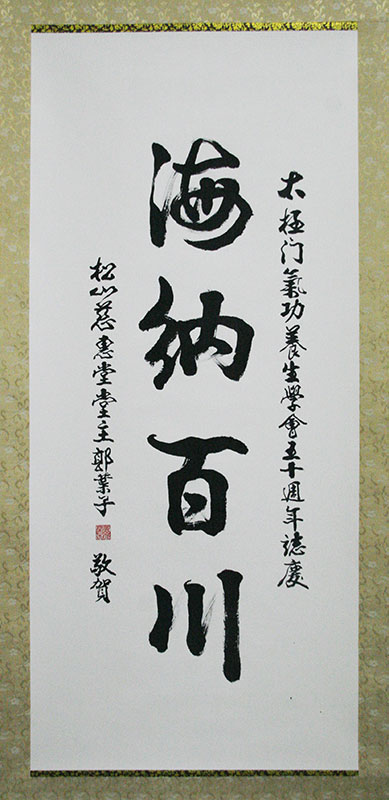 太極门氣功養生學會五十週年誌慶
海納百川
松山慈惠堂堂主郭葉子
敬賀